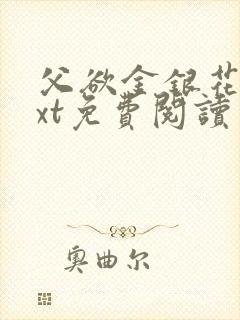 父欲金银花
xt免費閱讀
奥曲尔